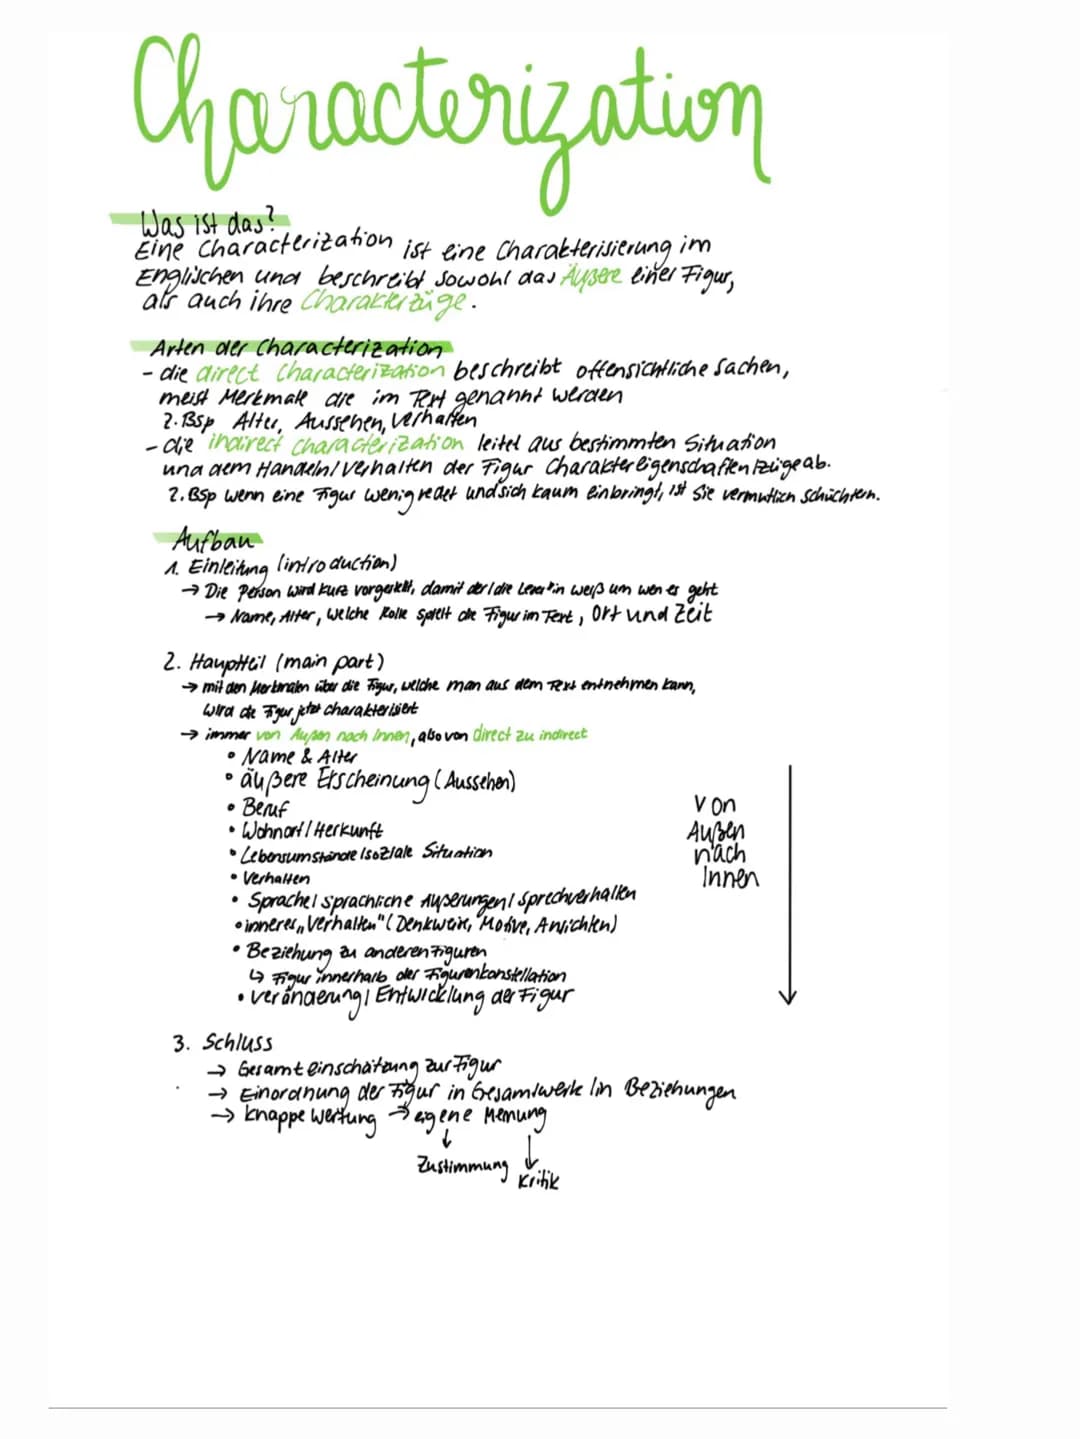 Characterization
Was ist das?
Eine Characterization ist eine Charakterisierung im
Englischen und beschreibt sowohl das Äußere einer Figur,
als auch ihre Charakterzüge.
Arten der Characterization
- die direct Characterization beschreibt offensichtliche Sachen,
meist Merkmale die im Text genannt werden
z.Bsp Alter, Aussehen, Verhalten
- die indirect characterization leitet aus bestimmten Situation
und dem Handeln/Verhalten der Figur Charaktereigenschaften/züge ab.
z.Bsp wenn eine Figur wenig redet und sich kaum einbringt, ist Sie vermutlich schüchtern.
Aufbau
1. Einleitung (introduction)
→ Die Person wird kurz vorgestellt, damit der/die Leser*in weiß um wen es geht
→ Name, Alter, welche Rolle spielt die Figur im Text, Ort und Zeit
2. Hauptteil (main part)
→ mit den Merkmalen über die Figur, welche man aus dem Text entnehmen kann,
wird die Figur jetzt charakterisiert
→ immer von Außen nach Innen, also von direct zu indirect
• Name & Alter
• äußere Erscheinung (Aussehen)
• Beruf
• Wohnort/Herkunft
• Lebensumstände/soziale Situation
• Verhalten
• Sprache/sprachliche Äußerungen/Sprechverhalten
• inneres „Verhalten" (Denkweise, Motive, Ansichten)
• Beziehung zu anderen Figuren
↳ Figur innerhalb der Figurenkonstellation
• Veränderung/Entwicklung der Figur
von
Außen
nach
Innen
3. Schluss
→ Gesamteinschätzung zur Figur
→ Einordnung der Figur in Gesamtwerk/in Beziehungen
→ knappe Wertung → eigene Meinung
↓ ↓
Zustimmung Kritik